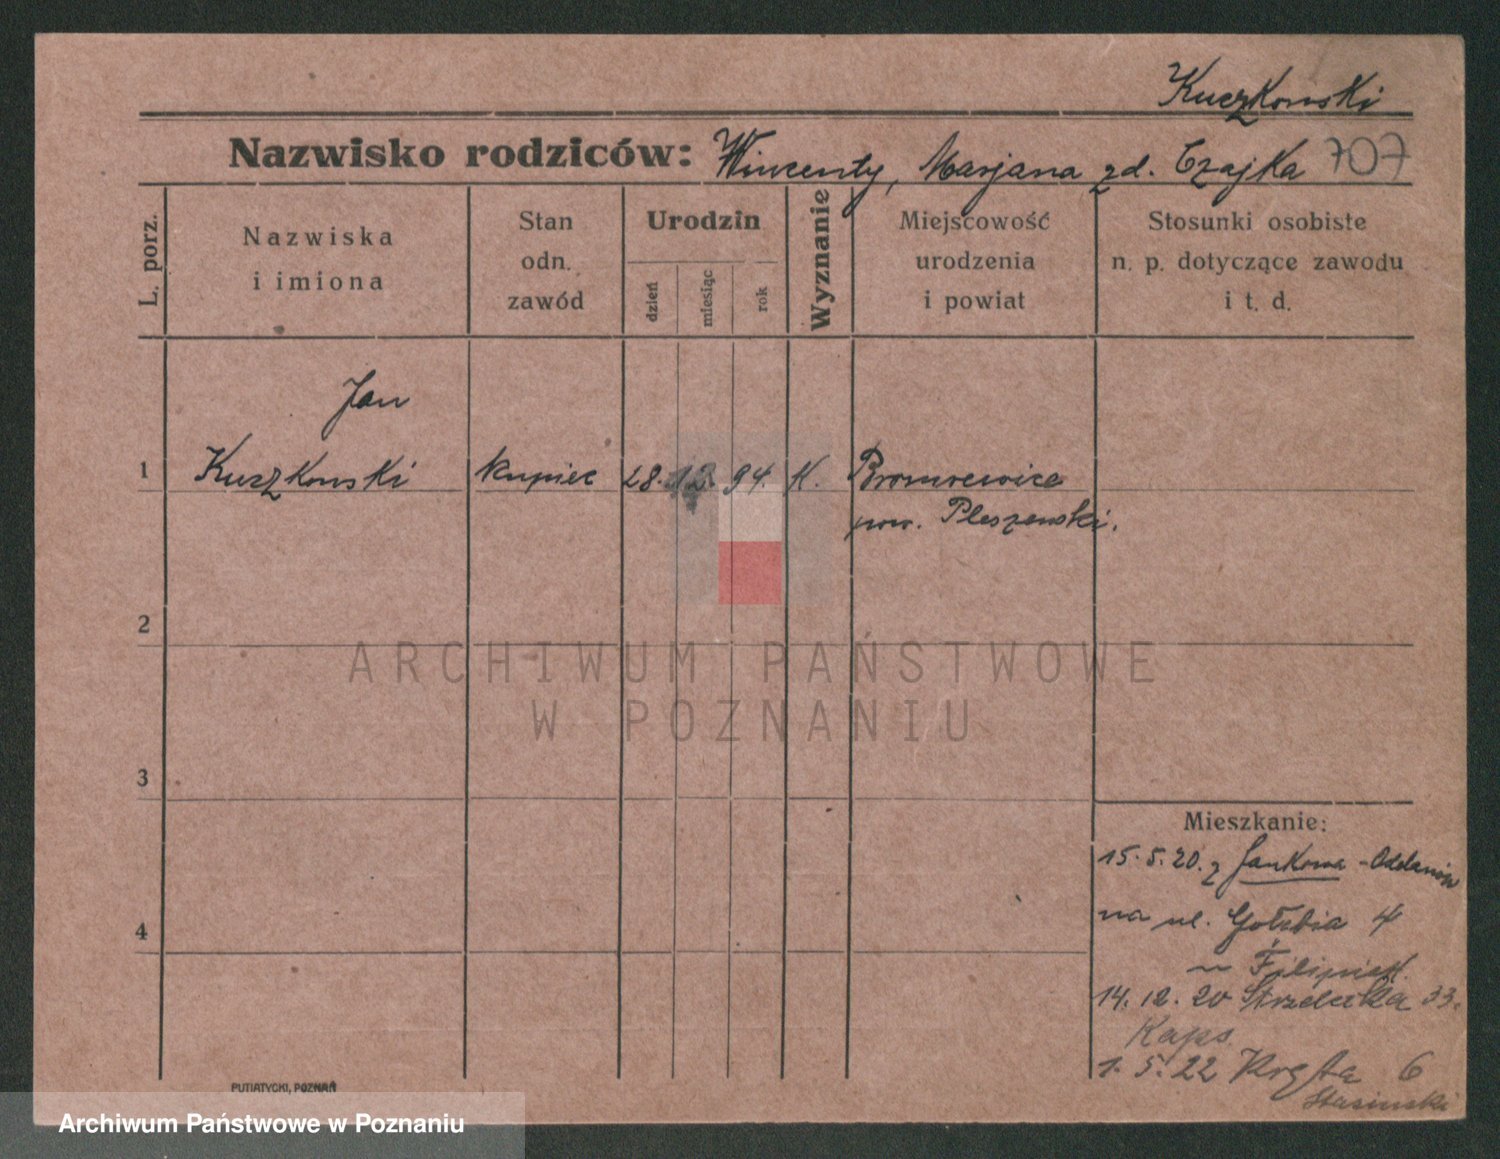 Kuczkowski
Nazwisko rodziców: Wincenty, Marjana zd. Czajka 707
L. porz.
Nazwiska
i imiona
Stan
odn.
zawód
Urodzin
dzień
miesiąc
rok
Wyznanie
Miejscowość
urodzenia
i powiat
Stosunki osobiste
n. p. dotyczące zawodu
i t. d.
Jan
1 Kuczkowski kupiec 28. 12. 94. K.
pow. Pleszewski.
2
ARCHIWUM PAŃSTWOWE
W POZNANIU
3
Mieszkanie:
15.5.20. z Jankowa - Odolanów
na ul. Gołębia 4
4
14.12.20 Strzelecka 33.
Kaps.
1.5.22 Kręta 6
Stasinski
PUTIATYCKI, POZNAŃ
Archiwum Państwowe w Poznaniu